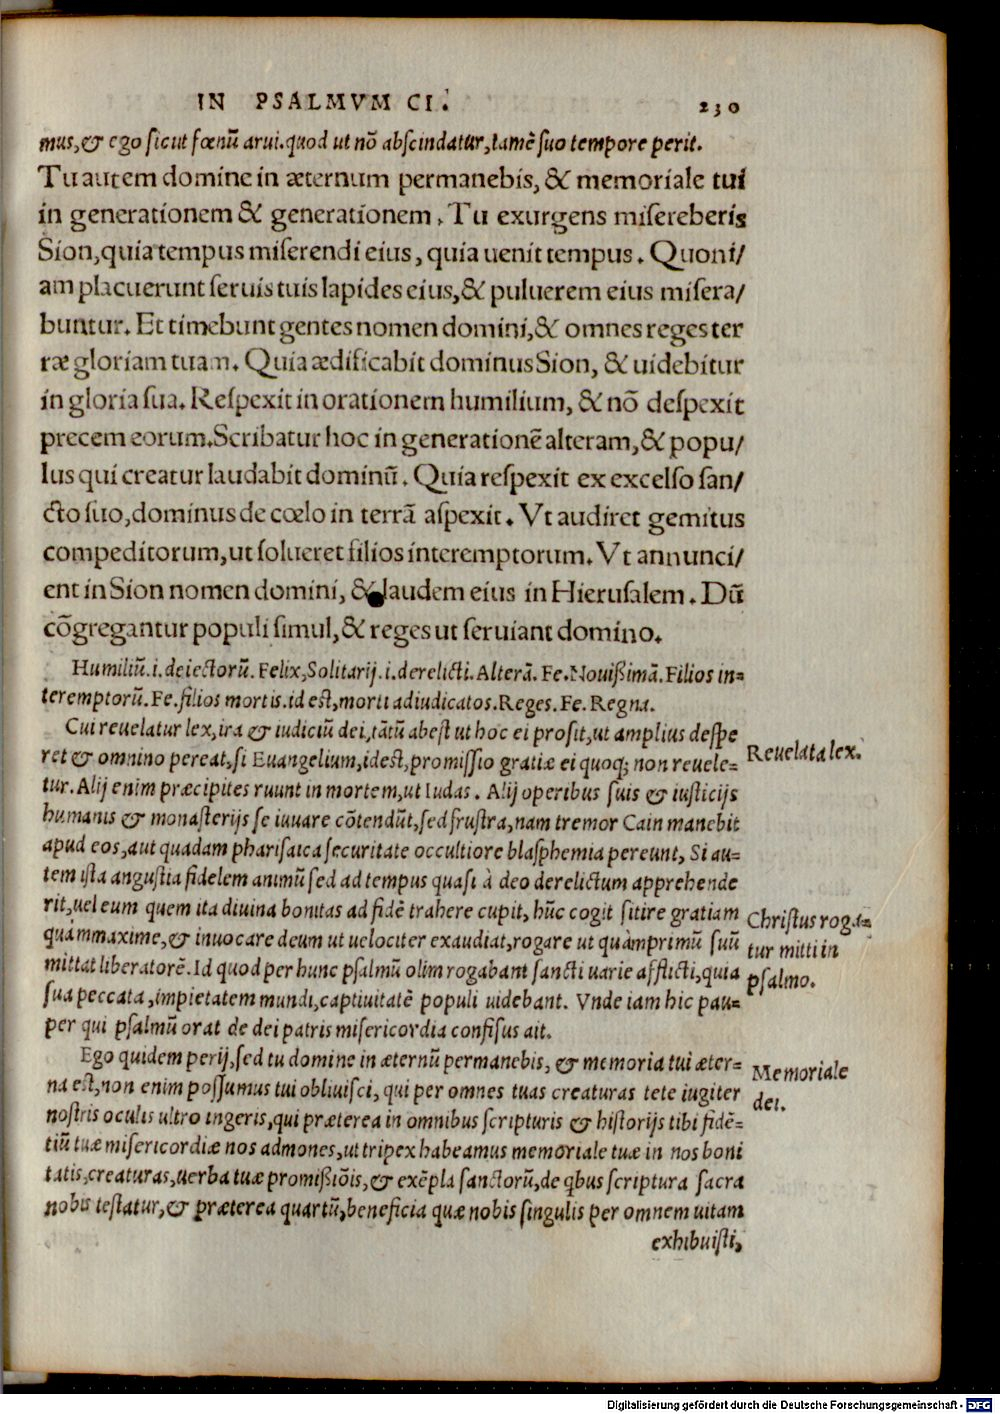 IN PSALMVM CI.
230
mus,& ego sicut fœnũ arui.quod ut nõ abscindatur,tamẽ suo tempore perit.
Tu autem domine in æternum permanebis, & memoriale tui
in generationem & generationem. Tu exurgens misereberis
Sion,quia tempus miserendi eius, quia uenit tempus. Quoni/
am placuerunt seruis tuis lapides eius,& puluerem eius misera/
buntur. Et timebunt gentes nomen domini,& omnes reges ter
ræ gloriam tuam. Quia ædificabit dominus Sion, & uidebitur
in gloria sua. Respexit in orationem humilium, & nõ despexit
precem eorum.Scribatur hoc in generationẽ alteram,& popu/
lus qui creatur laudabit dominũ. Quia respexit ex excelso san/
cto suo,dominus de cœlo in terrã aspexit. Vt audiret gemitus
compeditorum,ut solueret filios interemptorum. Vt annunci/
ent in Sion nomen domini, & laudem eius in Hierusalem. Dũ
cõgregantur populi simul,& reges ut seruiant domino.
Humiliũ.i.deiectorũ. Felix,Solitarij.i.derelicti.Alterã.Fe.Nouißimã.Filios in=
teremptorũ.Fe.filios mortis.id est,morti adiudicatos.Reges.Fe.Regna.
Cui reuelatur lex,ira & iudiciũ dei,tãtũ abest ut hoc ei prosit,ut amplius despe
ret & omnino pereat,si Euangelium,idest,promissio gratiæ ei quoq; non reuele=
tur.Alij enim præcipites ruunt in mortem,ut Iudas. Alij operibus suis & iusticijs
humanis & monasterijs se iuuare cõtendũt,sed frustra,nam tremor Cain manebit
apud eos,aut quadam pharisaica securitate occultiore blasphemia pereunt, Si au=
tem ista angustia fidelem animũ sed ad tempus quasi à deo derelictum apprehende
rit,uel eum quem ita diuina bonitas ad fidẽ trahere cupit, hũc cogit sitire gratiam
quàmmaxime,& inuocare deum ut uelociter exaudiat,rogare ut quàmprimũ suũ
mittat liberatorẽ.Id quod per hunc psalmũ olim rogabant sancti uarie afflicti,quia
sua peccata,impietatem mundi,captiuitatẽ populi uidebant. Vnde iam hic pau=
per qui psalmũ orat de dei patris misericordia confisus ait.
Ego quidem perij,sed tu domine in æternũ permanebis, & memoria tui æter=
na est,non enim possumus tui obliuisci, qui per omnes tuas creaturas te te iugiter
nostris oculis ultro ingeris,qui præterea in omnibus scripturis & historijs tibi fidẽ=
tiũ tuæ misericordiæ nos admones,ut tripex habeamus memoriale tuæ in nos boni
tatis,creaturas,uerba tuæ promißiõis,& exẽpla sanctorũ,de qbus scriptura sacra
nobis testatur,& præterea quartũ,beneficia quæ nobis singulis per omnem uitam
exhibuisti,
Reuelata lex.
Christus roga=
tur mitti in
psalmo.
Memoriale
dei.
Digitalisierung gefördert durch die Deutsche Forschungsgemeinschaft - DFG